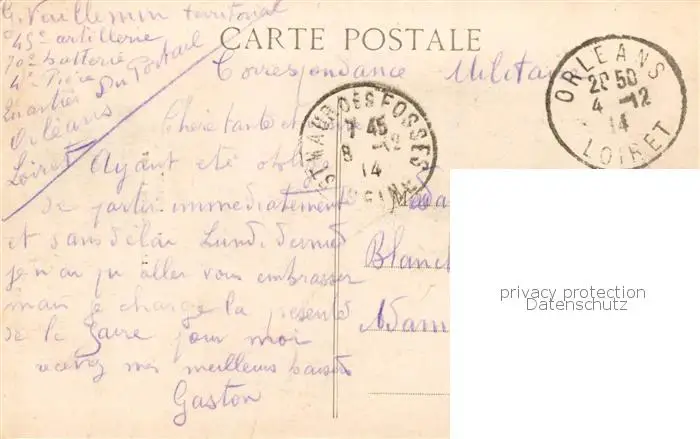 G. Vuillemin territorial
45e artillerie
70e batterie
4e Pièce
Quartier Du Portail
Orléans
Loiret
CARTE POSTALE
Correspondance Militai
ORLEANS
20 50
4 -12
14
LOIRET
ST MAUR DES FOSSES
7 45
8 -12
14
SEINE
Chère tante et
Ayant eté obligé
de partir immediatement
et sans délai Lundi dernier
je n'ai pu aller vous embrasser
mais je charge la présente
de le faire pour moi
recevez mes meilleurs baisers
Gaston
Mada
Blanc
Adam
privacy protection
Datenschutz